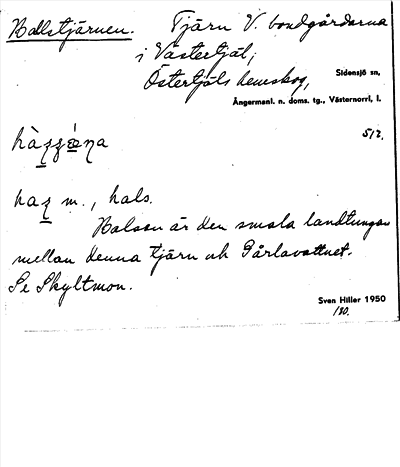 Hallstjärnen. Tjärn V. bondgårdarna
i Västertjäl,
Östertjäls hemskog,
Sidensjö sn,
Ångermanl. n. doms. tg., Västernorrl. l.
512.
m., hals.
Halsen är den smala landtungan
mellan denna tjärn och Gårlavattnet.
Se Skyltmon.
Sven Hiller 1950
180.